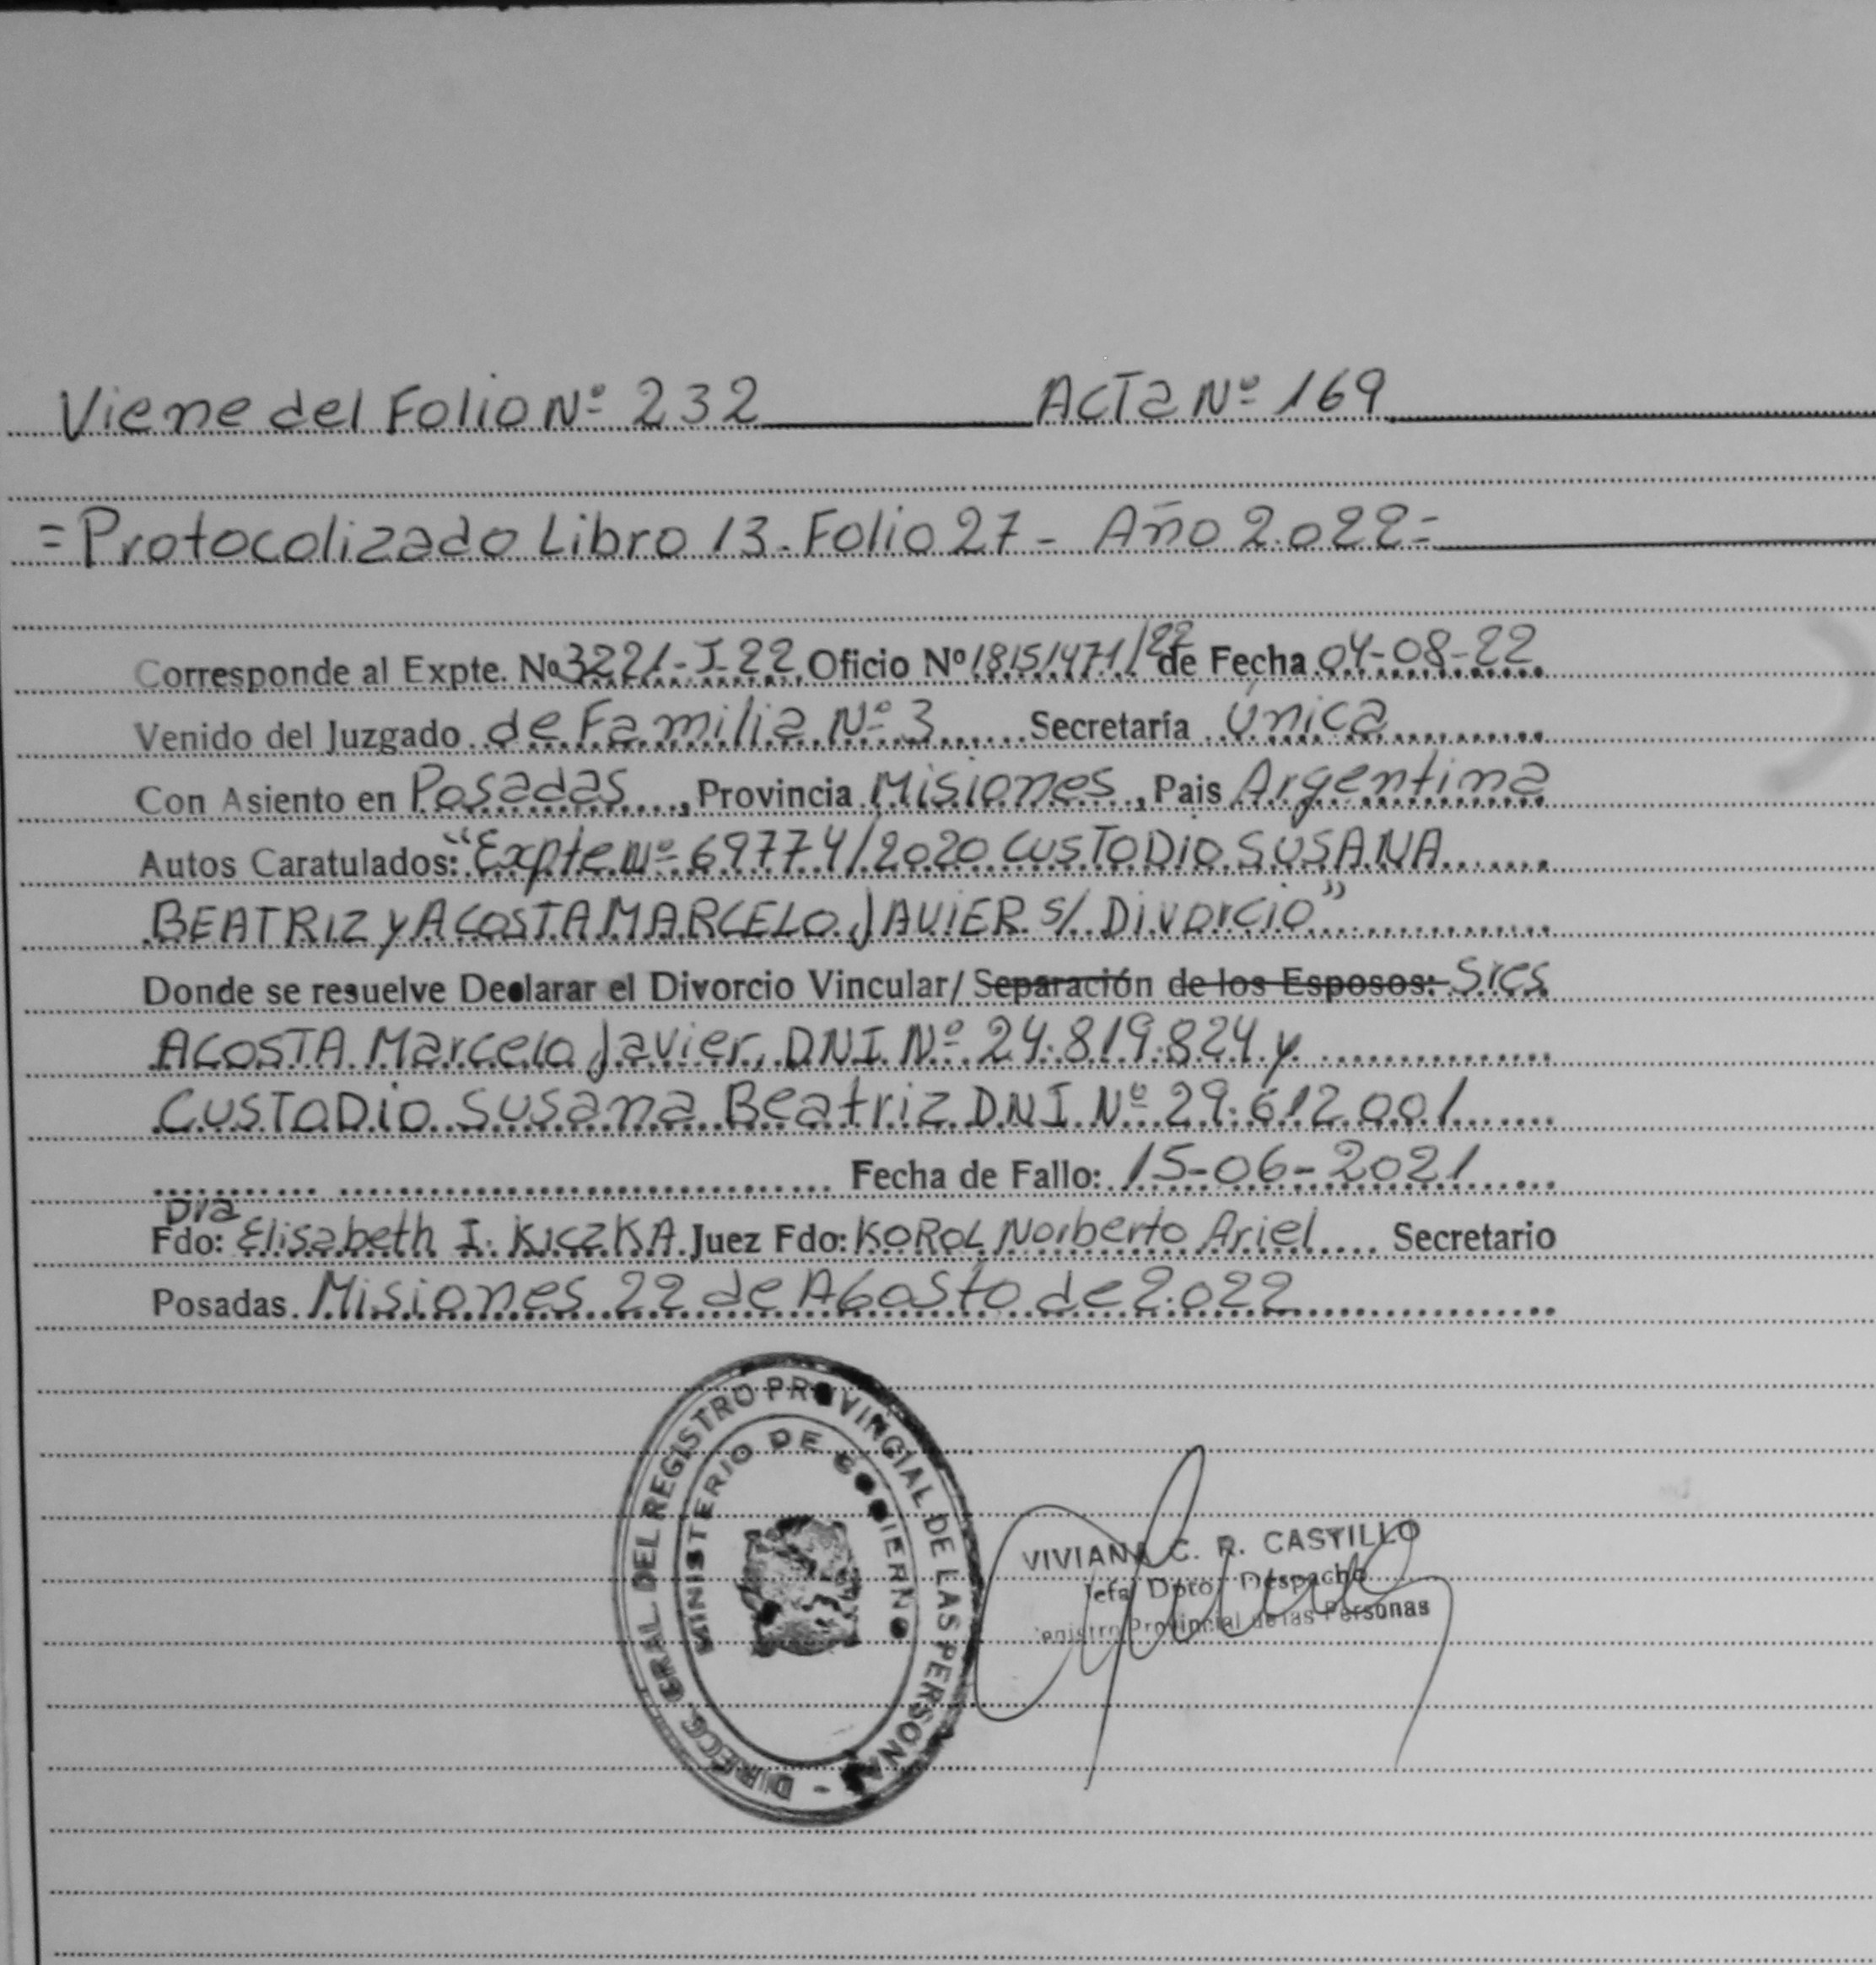 Viene del Folio Nº 232 ACTA Nº 169
=Protocolizado Libro 13-Folio 27 - Año 2.022=
Corresponde al Expte. Nº 3221-I-22 Oficio Nº 18151471/22 de Fecha 04-08-22
Venido del Juzgado de Familia Nº 3 Secretaría Única
Con Asiento en Posadas, Provincia Misiones, Pais Argentina
Autos Caratulados: "Expte Nº 69774/2020 CUSTODIO SUSANA
BEATRIZ y ACOSTA MARCELO JAVIER s/ Divorcio"
Donde se resuelve Declarar el Divorcio Vincular/ Separación de los Esposos: Sres
ACOSTA Marcelo Javier, DNI Nº 24.819.824 y
CUSTODIO Susana Beatriz DNI Nº 29.612.001
Fecha de Fallo: 15-06-2021
Dra
Fdo: Elisabeth I. KICZKA Juez Fdo: KOROL Norberto Ariel Secretario
Posadas. Misiones 22 de AGosto de 2.022
DIRECC. GRAL. DEL REGISTRO PROVINCIAL DE LAS PERSONAS -
MINISTERIO DE GOBIERNO
VIVIANA C. R. CASTILLO
Jefa Dpto. Despacho
Registro Provincial de las Personas